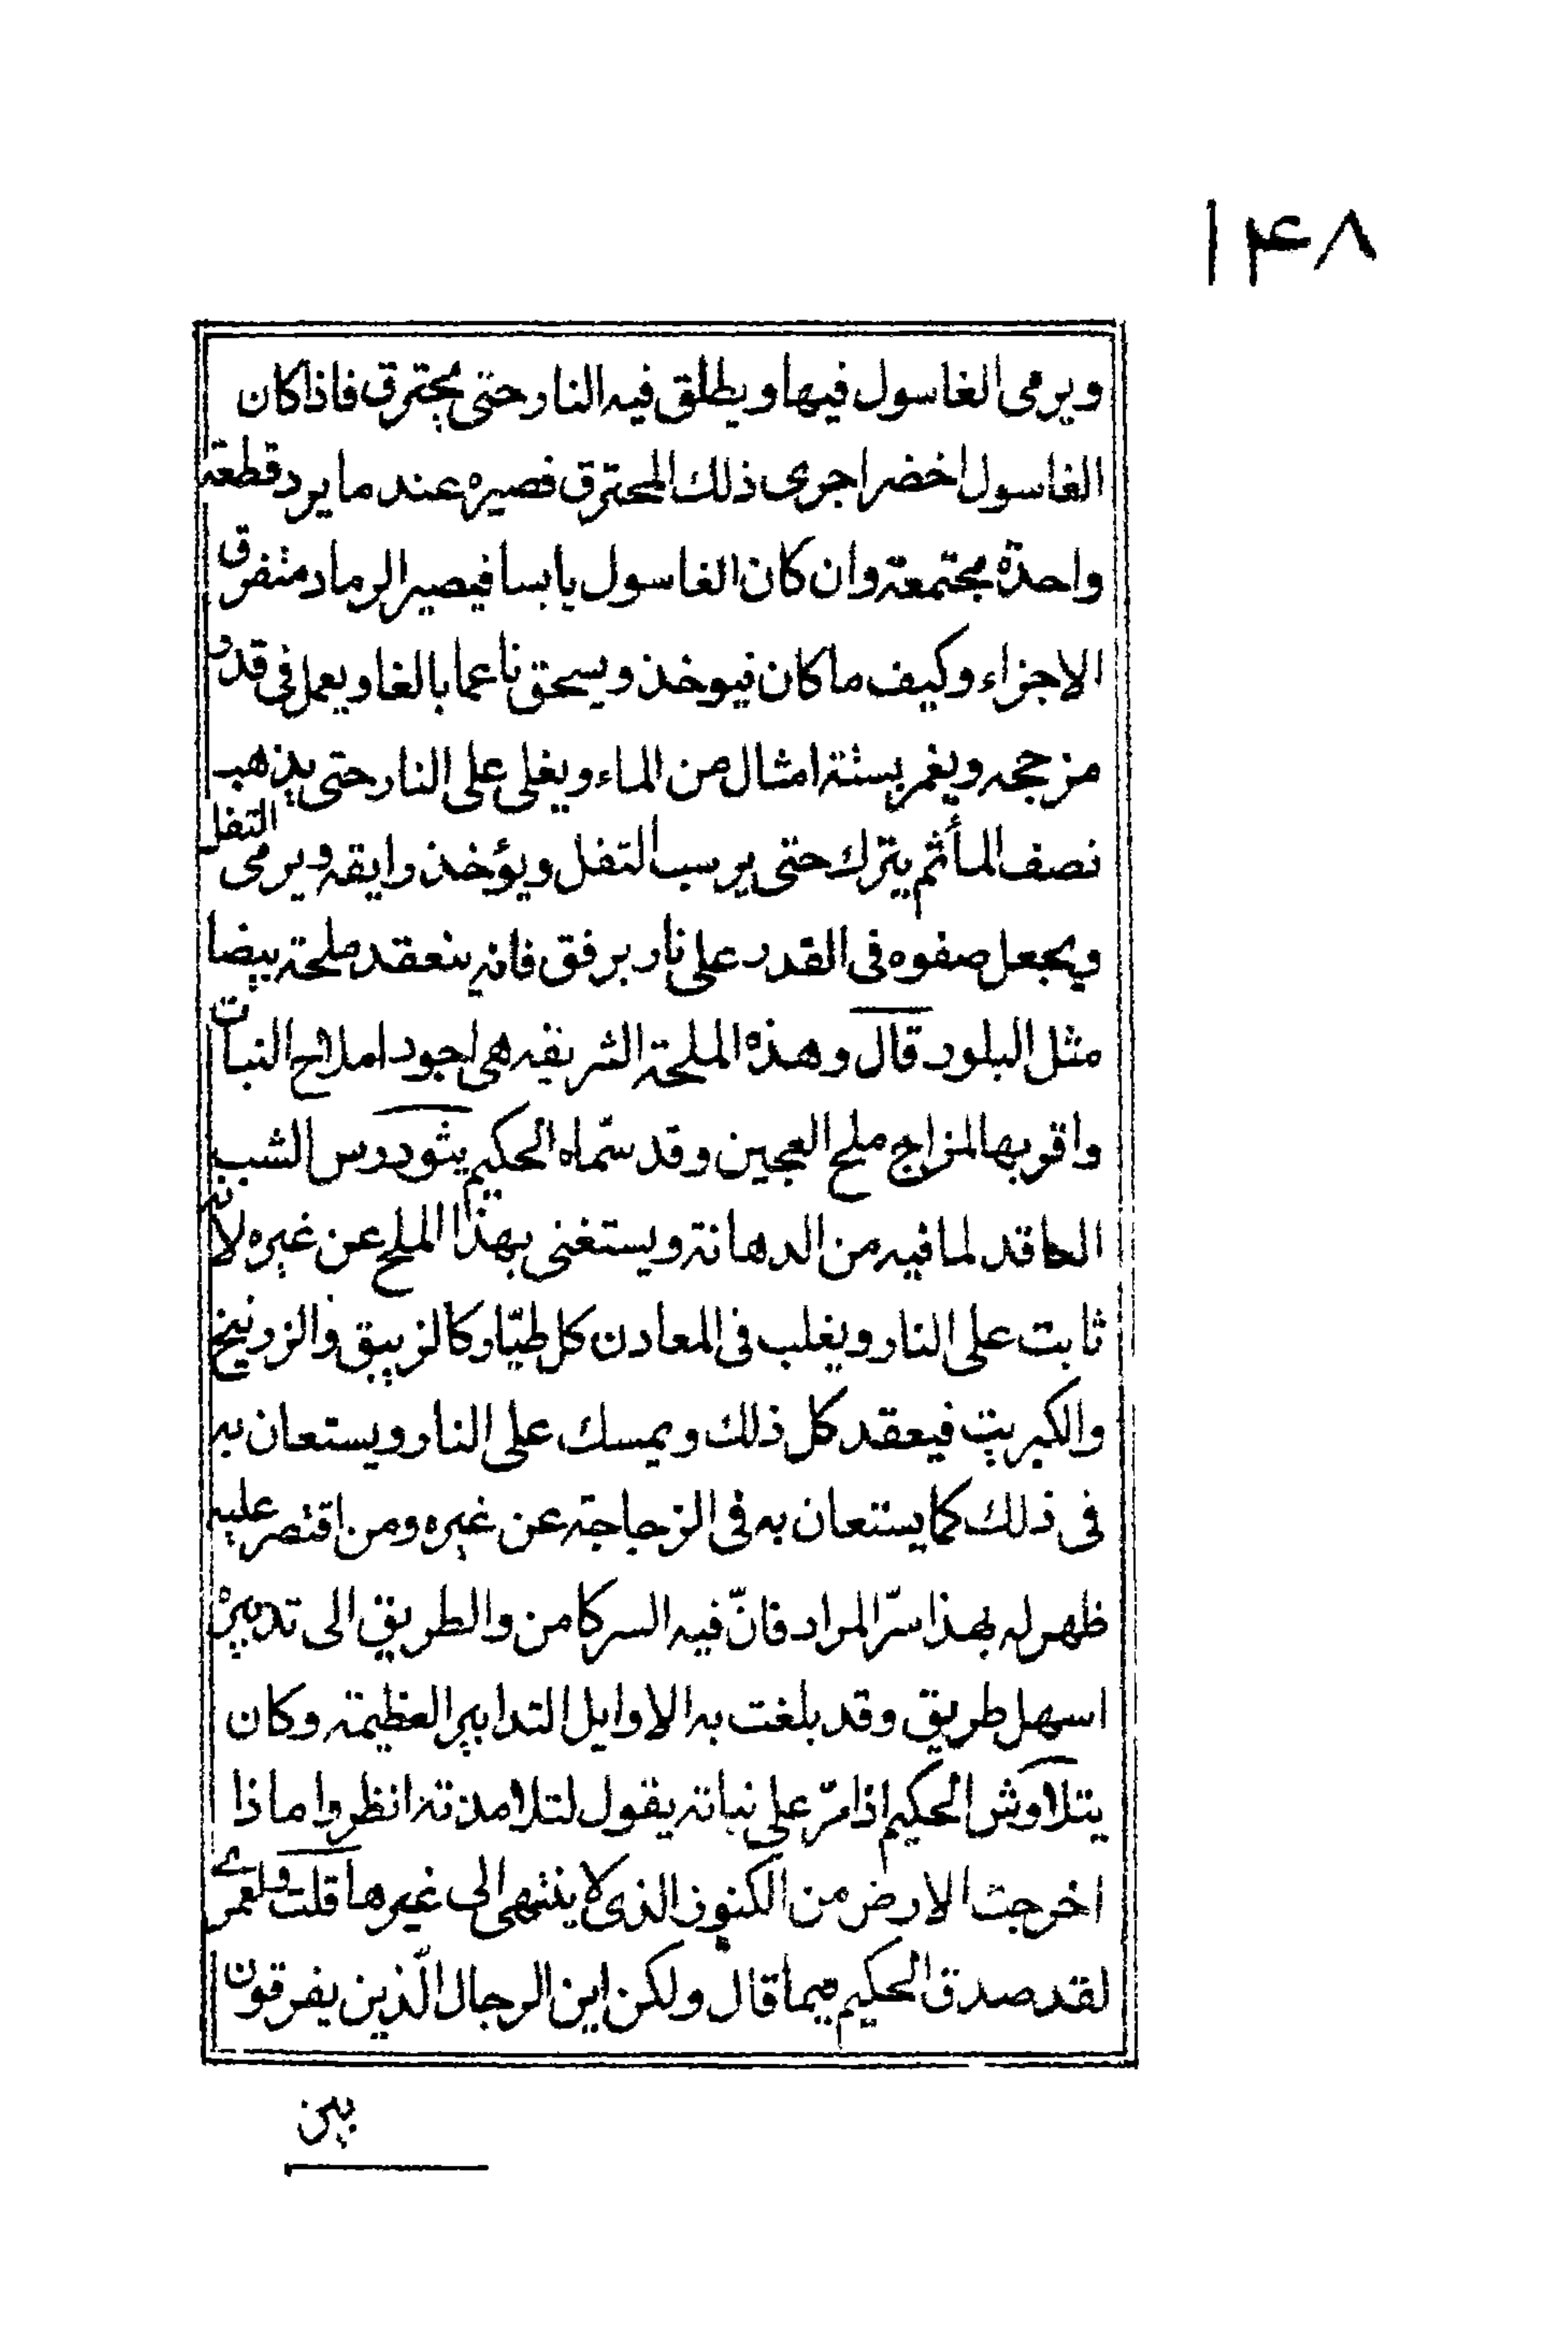 ١۴٨
ويرمى الغاسول فيها ويطلق فيه النار حتى يحترق فاذا كان
الغاسول اخضرا جرى ذلك المحترق فصيره عند ما يرد قطعة
واحدة مجتمعة وان كان الغاسول يابسا فيصير الرماد متفرق
الاجزاء وكيف ما كان فيوخذ ويسحق ناعما بالغا ويعمل فى قدر
مزججه ويغمر بستة امثال من الماء ويغلى على النار حتى يذهب
نصف المأ ثم يترك حتى يرسب التفل ويؤخذ رايقه ويرمى التفل
ويجعل صفوه فى القدر على نار برفق فانه ينعقد ملحة بيضا
مثل البلور قال وهذه الملحة الشريفه هى اجود املاح النبات
واقربها لمزاج ملح العجين وقد سمّاه الحكيم يثودرس الشب
الحاقد لما فيه من الدهانة ويستغنى بهذا الملح عن غيره لانه
ثابت على النار ويغلب فى المعادن كل طيّار كالزيبق والزرنيخ
والكبريت فيعقد كل ذلك ويمسك على النار ويستعان به
فى ذلك كما يستعان به فى الزجاجة عن غيره ومن اقتصر عليه
ظهر له بهذا سرّ المراد فانّ فيه السر كامن والطريق الى تدبيره
اسهل طريق وقد بلغت به الاوايل التدابير العظيمة وكان
يتلاوش الحكيم اذا مرّ على نباته يقول لتلامذته انظروا ماذا
اخرجت الارض من الكنوز الذى لا ينتهى الى غيرها قلت ولعمرى
لقد صدق الحكيم فيما قال ولكن اين الرجال الّذين يفرقون
بين